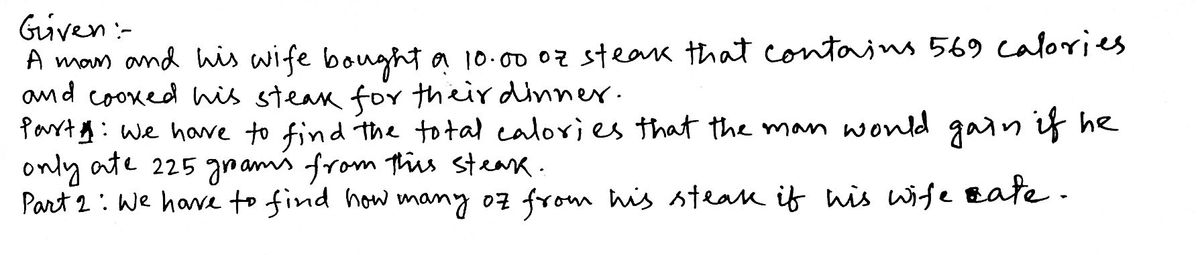 Given :-
A man and his wife bought a 10.00 oz steak that contains 569 calories
and cooked his steak for their dinner.
Part 1: We have to find the total calories that the man would gain if he
only ate 225 grams from this steak.
Part 2: We have to find how many oz from his steak if his wife eate.